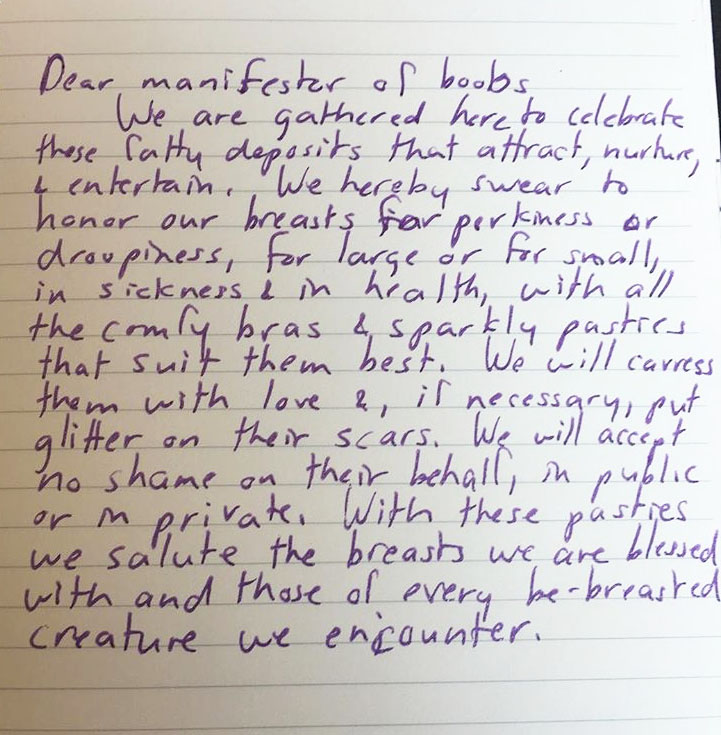 Dear manifester of boobs
We are gathered here to celebrate
these fatty deposits that attract, nurture,
& entertain. We hereby swear to
honor our breasts for perkiness or
droopiness, for large or for small,
in sickness & in health, with all
the comfy bras & sparkly pasties
that suit them best. We will carress
them with love &, if necessary, put
glitter on their scars. We will accept
no shame on their behalf, in public
or in private. With these pasties
we salute the breasts we are blessed
with and those of every be-breasted
creature we encounter.